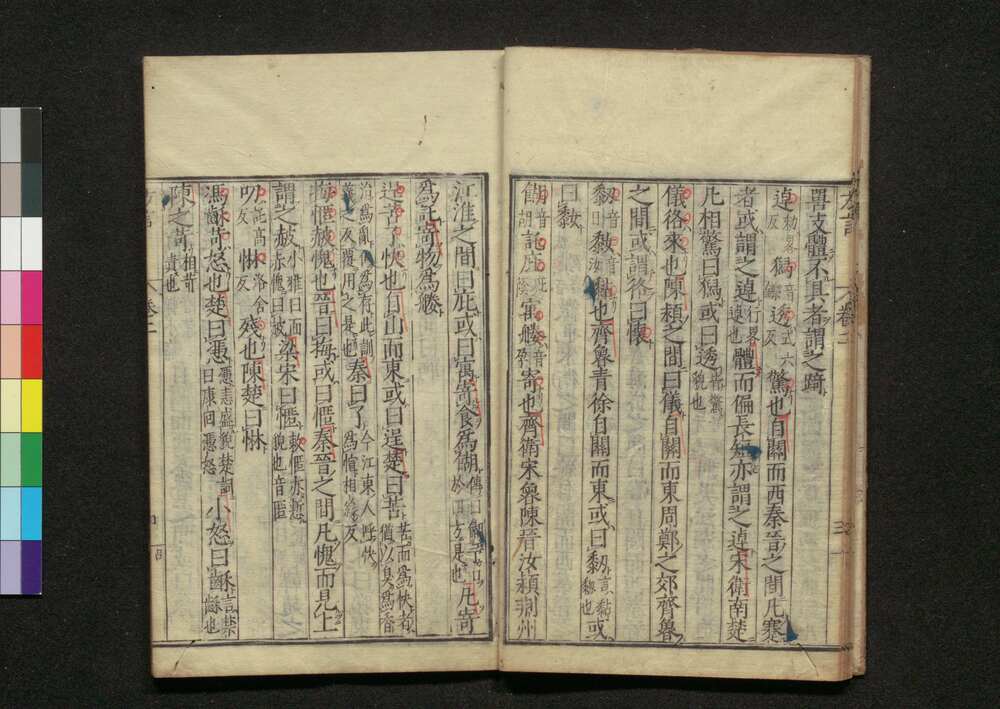 嘼支體不具者謂之踦
逴勑略反獡音鑠透式六反驚也自關而西秦晉之間凡蹇
者或謂之逴行略逴也體而偏長短亦謂之逴宋衛南楚
凡相驚曰獡或曰透皆驚貌也
儀佫來也陳潁之間曰儀自關而東周鄭之郊齊魯
之間或謂佫曰懷
䵑音日䵒音汝黏也齊魯青徐自關而東或曰䵑言黏䵑也或
曰䵒
餬音胡託庇庇蔭寓艐音孕寄也齊衛宋魯陳晉汝潁荊州
江淮之間曰庇或曰寓寄食爲餬傳曰餬予口於四方是也凡寄
爲託寄物爲艐
逞苦了快也自山而東或曰逞楚曰苦苦而爲快者猶以臭爲香
治爲亂徂爲存此訓義之反覆用之是也秦曰了今江東人呼快爲愃相緣反
挴㥾赧愧也晉曰挴或曰㥾秦晉之間凡愧而見上
謂之赧小雅曰面赤愧曰赧梁宋曰㥾敕㥾亦慙貌也音匿
叨託高反惏洛含反殘也陳楚曰惏
馮齘苛怒也楚曰憑憑恚盛貌楚詞曰康回憑怒小怒曰齘言噤齘也
陳之苛相苛責也